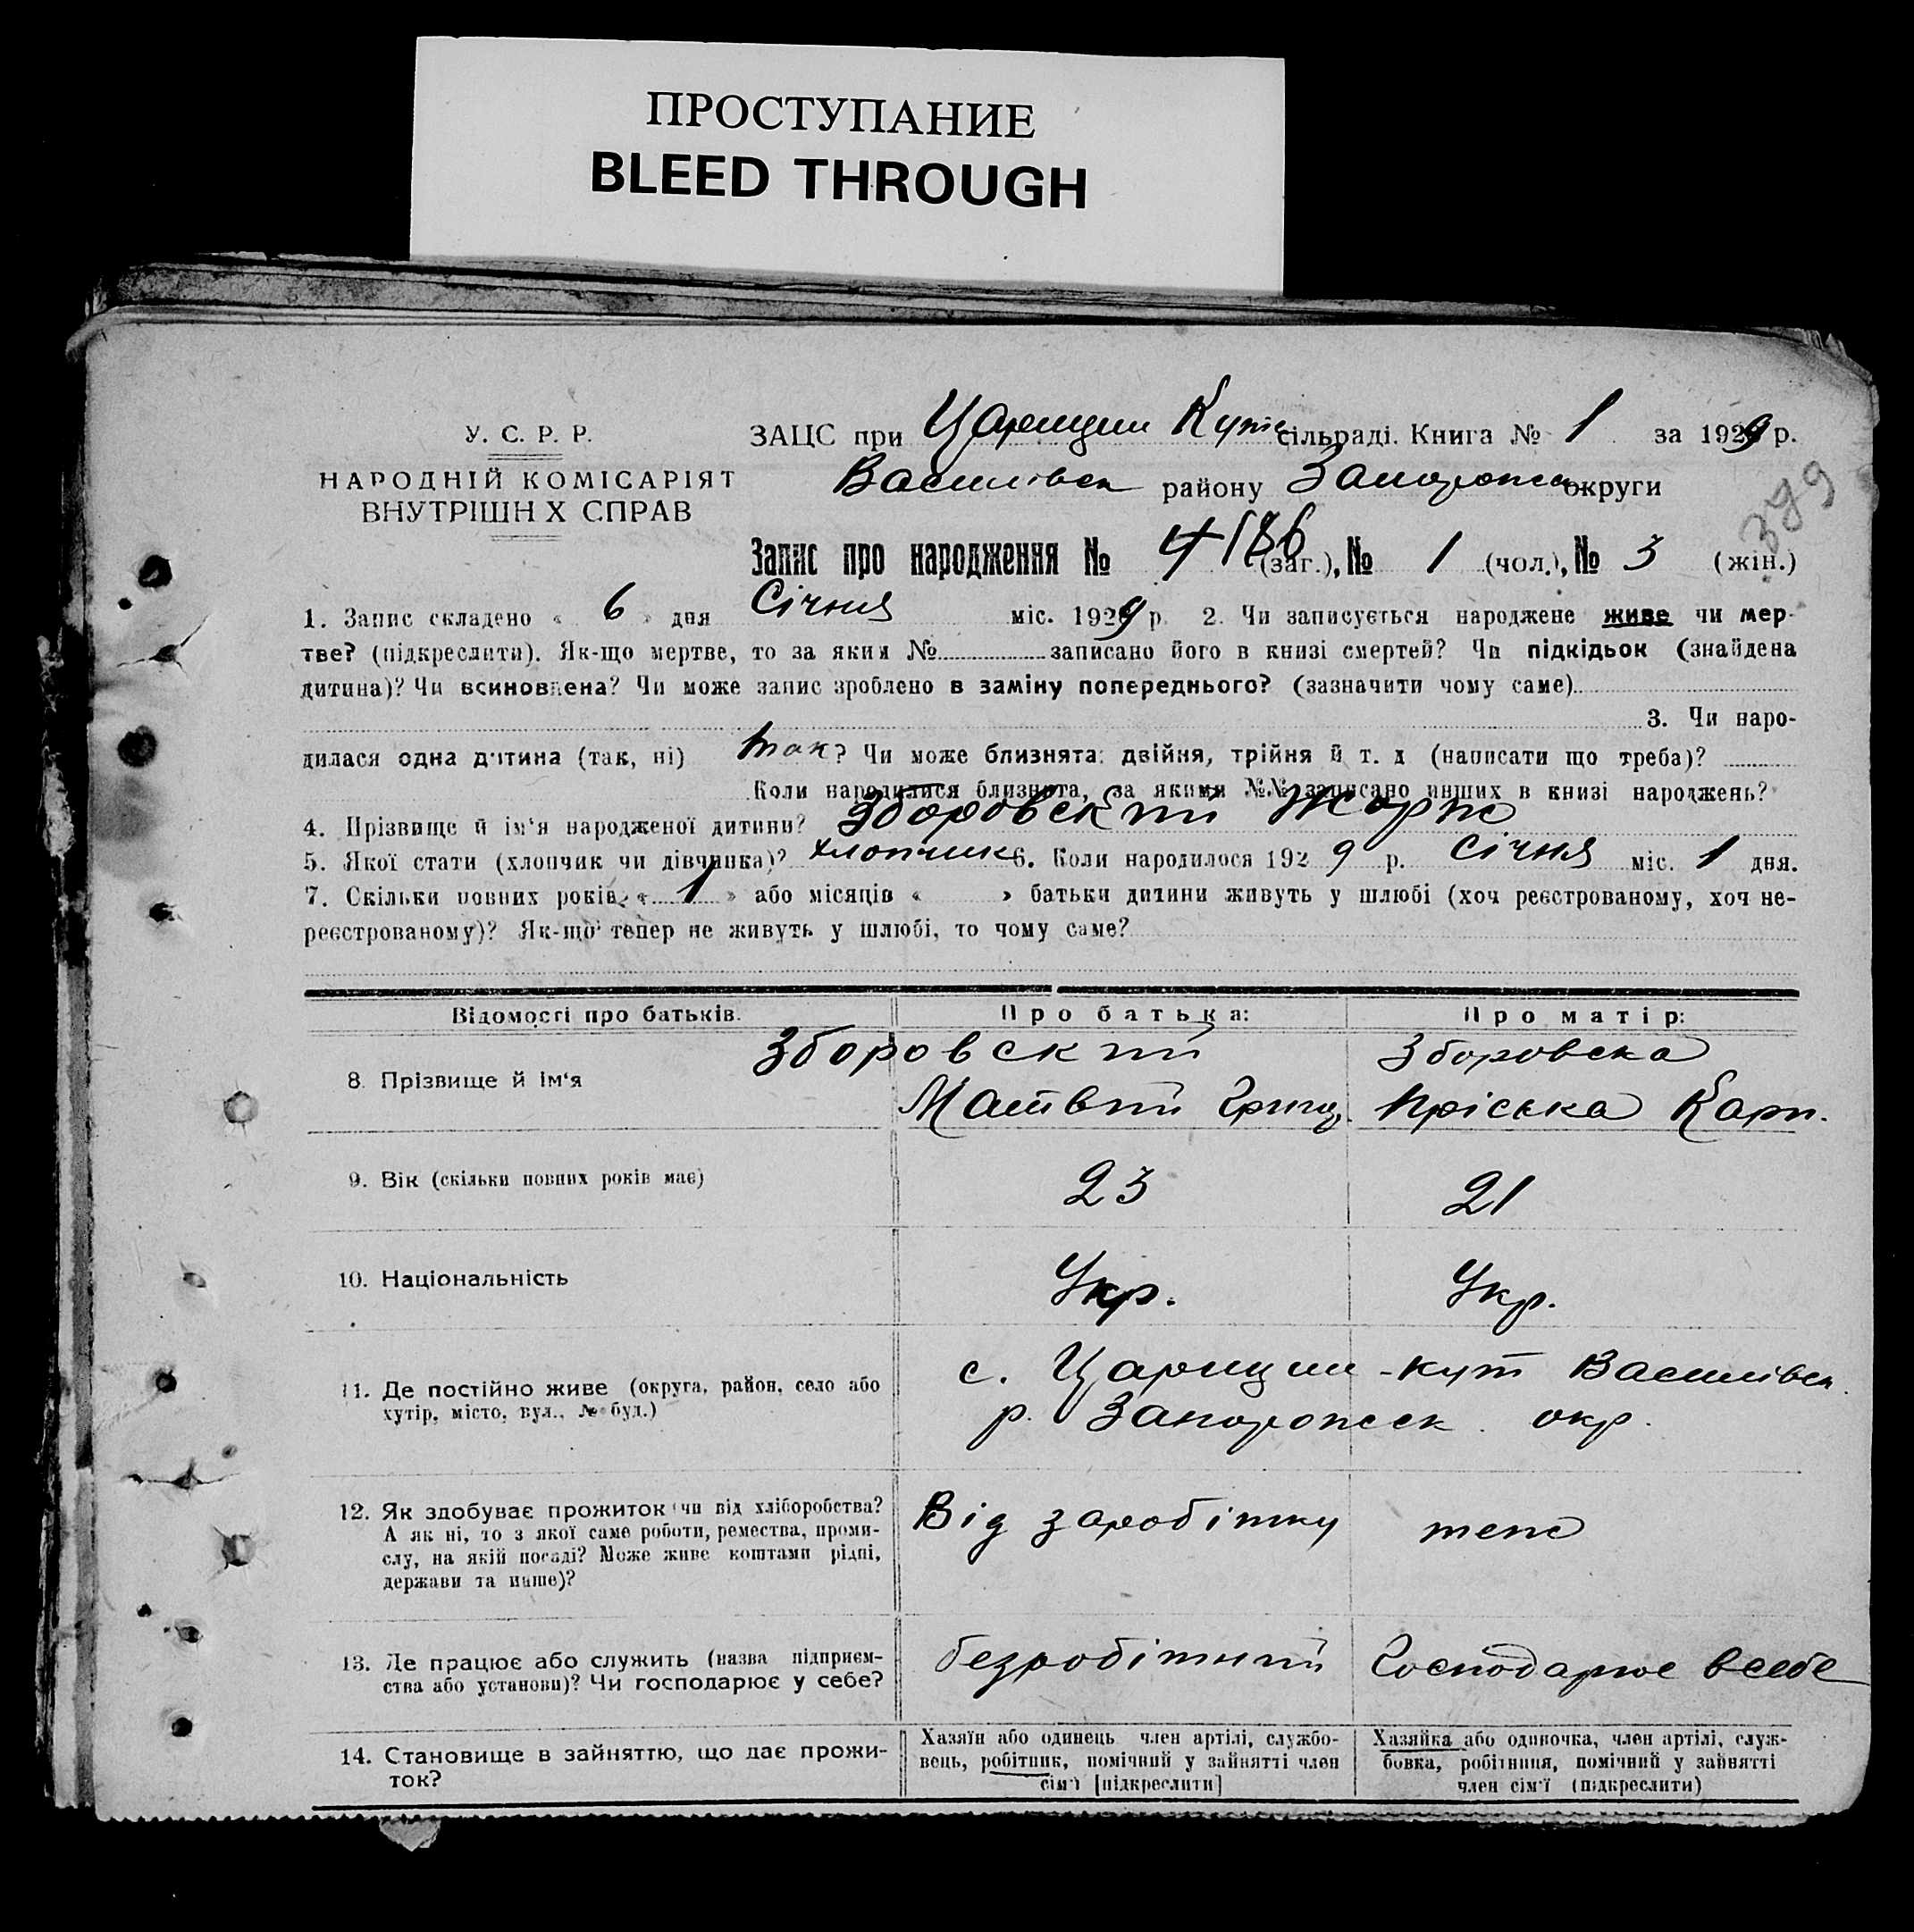 ПРОСТУПАНИЕ
BLEED THROUGH
У. С. Р. Р.
НАРОДНІЙ КОМІСАРІЯТ
ВНУТРІШН Х СПРАВ
ЗАЦС при Царицин Кутс сільраді. Книга № 1 за 1929 р.
Василівск району Запорожск округи
379
Запис про народження № 4 186 (заг.), № 1 (чол.), № 3 (жін.)
1. Запис складено « 6 » дня Січня міс. 1929 р. 2. Чи записується народжене живе чи мер-
тве? (підкреслити). Як-що мертве, то за яким № записано його в книзі смертей? Чи підкідьок (знайдена
дитина)? Чи всиновлена? Чи може запис зроблено в заміну попереднього? (зазначити чому саме)
3. Чи наро-
дилася одна дитина (так, ні) так? Чи може близнята: двійня, трійня й т. д (написати що треба)?
Коли народилися близнята, за якими №№ записано инших в книзі народжень?
4. Прізвище й ім'я народженої дитини? Зборовский Жорж
5. Якої стати (хлопчик чи дівчинка)? хлопчик 6. Коли народилося 1929 р. Січня міс. 1 дня.
7. Скільки повних років « 1 » або місяців « » батьки дитини живуть у шлюбі (хоч реєстрованому, хоч не-
реєстрованому)? Як-що тепер не живуть у шлюбі, то чому саме?
Відомості про батьків. Про батька: Про матір:
Зборовский Зборовска
8. Прізвище й ім'я
Матвій Гриц. Пріська Карп.
9. Вік (скільки повних років має) 23 21
10. Національність Укр. Укр.
11. Де постійно живе (округа, район, село або
хутір, місто, вул., № буд.)
с. Царицин-кут Василівск.
р. Запорожск. окр.
12. Як здобуває прожиток (чи від хліборобства?
А як ні, то з якої саме роботи, ремества, проми-
слу, на якій посаді? Може живе коштами рідні,
держави та инше)?
Від заробітку теж
13. Де працює або служить (назва підприєм-
ства або установи)? Чи господарює у себе?
безробітний Господарює в себе
14. Становище в зайняттю, що дає прожи-
ток?
Хазяїн або одинець член артілі, службо-
вець, робітник, помічний у зайнятті член
сім'ї [підкреслити]
Хазяйка або одиночка, член артілі, служ-
бовка, робітниця, помічний у зайнятті
член сім'ї (підкреслити)